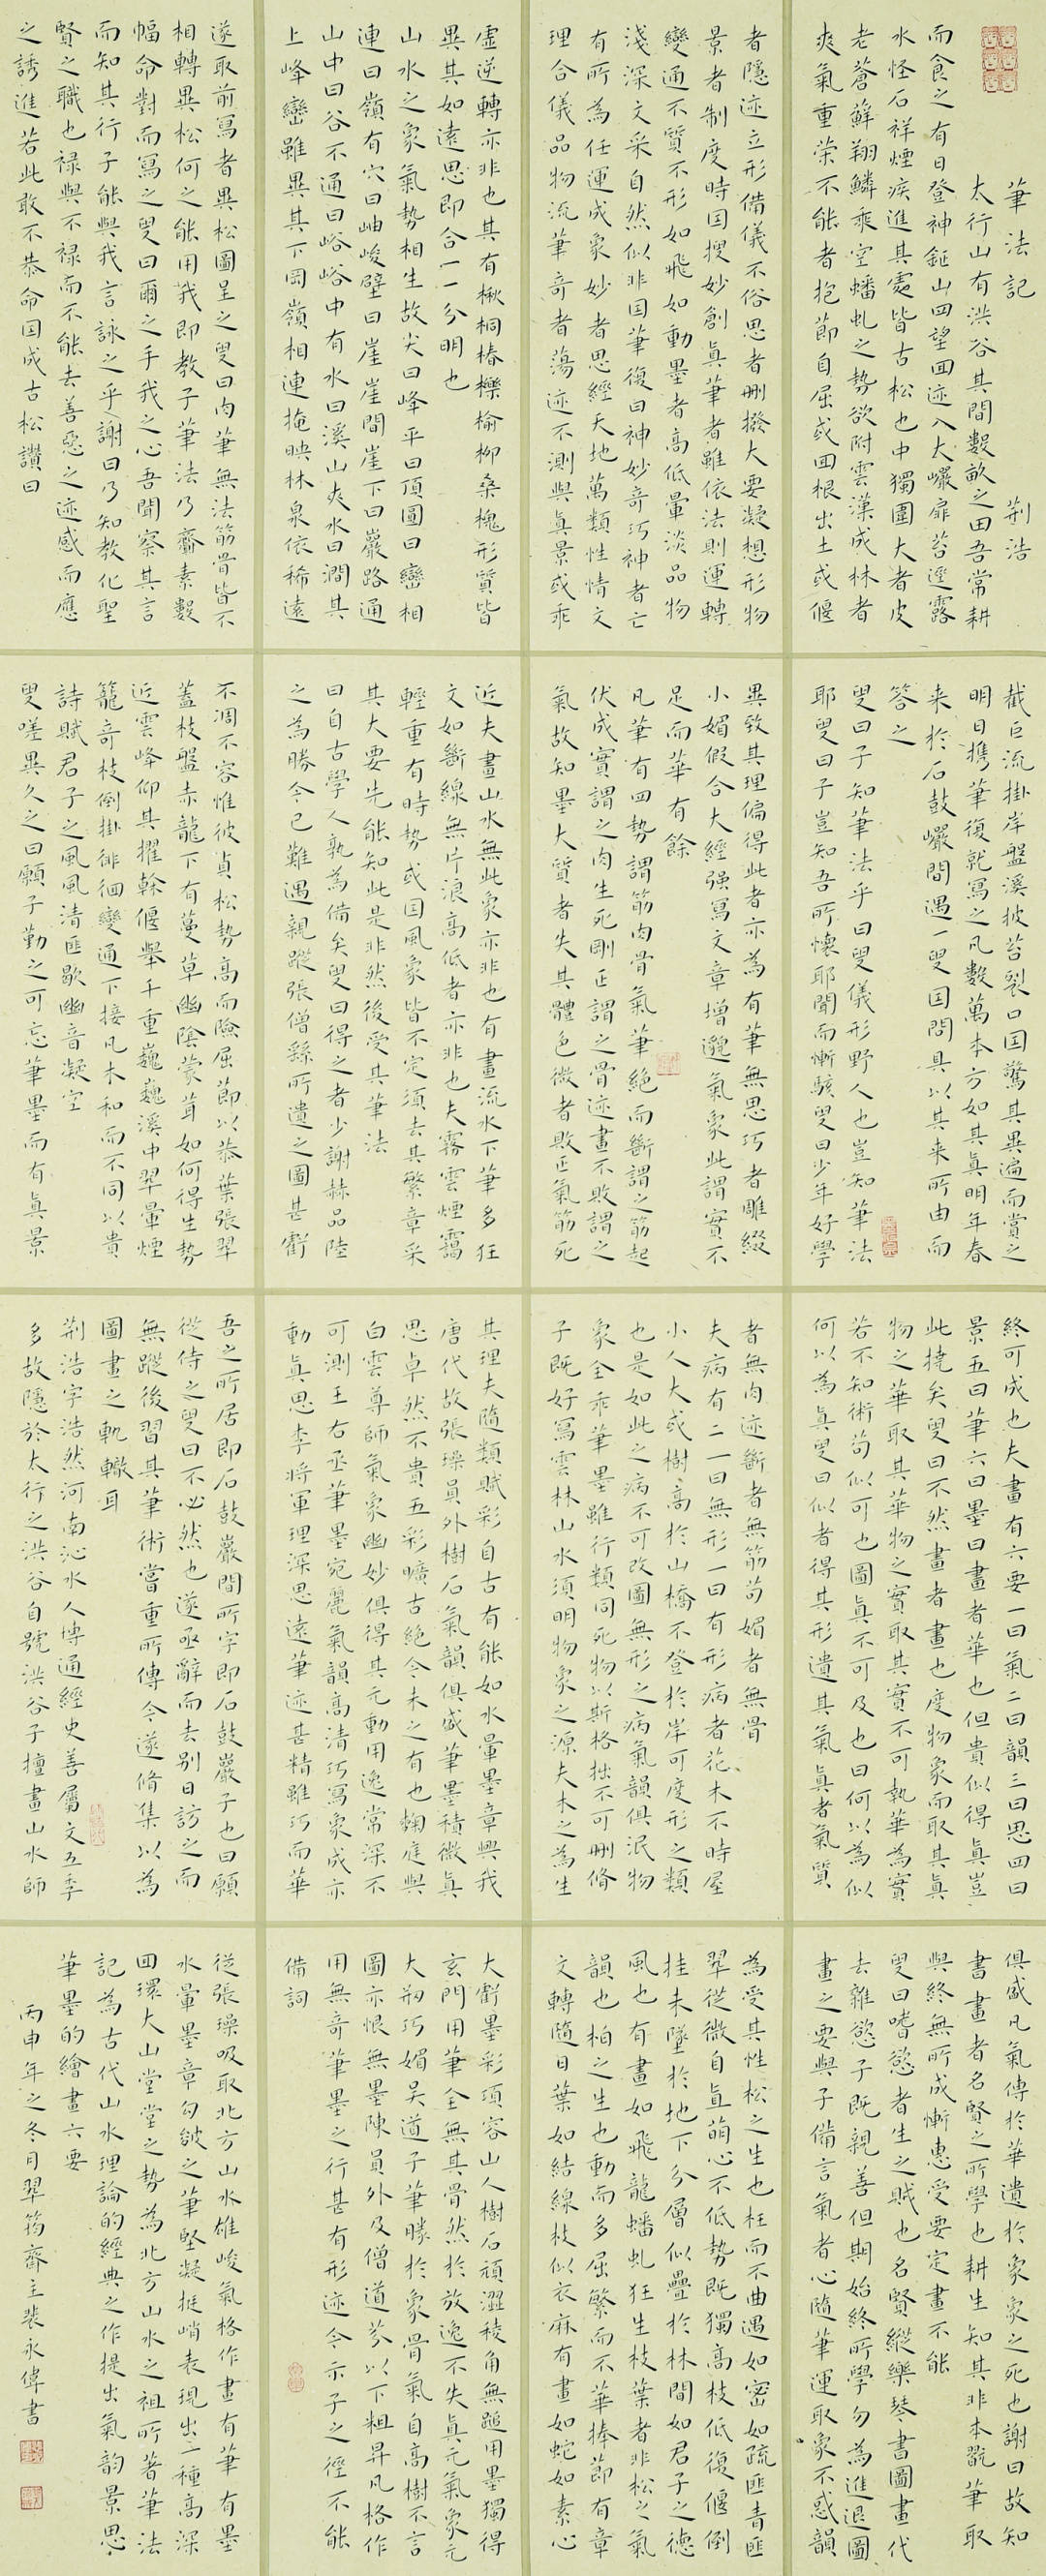 筆法記 荊浩
太行山有洪谷其間數畝之田吾常耕
而食之有日登神鉦山四望回迹入大巖扉苔逕露
水怪石祥煙疾進其處皆古松也中獨圍大者皮
老蒼蘚翔鱗乘空蟠虬之勢欲附雲漢成林者
爽氣重榮不能者抱節自屈或回根出土或偃
截巨流掛岸盤溪披苔裂口因驚其異遍而賞之
明日攜筆復就寫之凡數萬本方如其真明年春
来於石鼓巖間遇一叟因問具以其来所由而
答之
叟曰子知筆法乎曰叟儀形野人也豈知筆法
耶叟曰子豈知吾所懷耶聞而慚駭叟曰少年好學
終可成也夫畫有六要一曰氣二曰韻三曰思四曰
景五曰筆六曰墨曰畫者華也但貴似得真豈
此撓矣叟曰不然畫者畫也度物象而取其真
物之華取其華物之實取其實不可執華為實
若不知術苟似可也圖真不可及也曰何以為似
何以為真叟曰似者得其形遺其氣真者氣質
俱盛凡氣傳於華遺於象象之死也謝曰故知
書畫者名賢之所學也耕生知其非本翫筆取
與終無所成慚惠受要定畫不能
叟曰嗜慾者生之賊也名賢縱樂琴書圖畫代
去雜慾子既親善但期始終所學勿為進退圖
畫之要與子備言氣者心隨筆運取象不惑韻
者隱迹立形備儀不俗思者刪撥大要凝想形物
景者制度時因搜妙創真筆者雖依法則運轉
變通不質不形如飛如動墨者高低暈淡品物
淺深文采自然似非因筆復曰神妙奇巧神者亡
有所為任運成象妙者思經天地萬類性情文
理合儀品物流筆奇者蕩迹不測與真景或乖
異致其理偏得此者亦為有筆無思巧者雕綴
小媚假合大經强寫文章增邈氣象此謂實不
足而華有餘
凡筆有四勢謂筋肉骨氣筆絕而斷謂之筋起
伏成實謂之肉生死剛正謂之骨迹畫不敗謂之
氣故知墨大質者失其體色微者敗正氣筋死
者無肉迹斷者無筋苟媚者無骨
夫病有二一曰無形一曰有形病者花木不時屋
小人大或樹高於山橋不登於岸可度形之類
也是如此之病不可改圖無形之病氣韻俱泯物
象全乖筆墨雖行類同死物以斯格拙不可刪修
子既好寫雲林山水須明物象之源夫木之為生
為受其性松之生也枉而不曲遇如密如疏匪青匪
翠從微自直萌心不低勢既獨高枝低復偃倒
挂未墜於地下分層似疊於林間如君子之德
風也有畫如飛龍蟠虬狂生枝葉者非松之氣
韻也柏之生也動而多屈繁而不華捧節有章
文轉隨日葉如結線枝似衣麻有畫如蛇如素心
虛逆轉亦非也其有楸桐椿櫟榆柳桑槐形質皆
異其如遠思即合一一分明也
山水之象氣勢相生故尖曰峰平曰頂圓曰巒相
連曰嶺有穴曰岫峻壁曰崖崖間崖下曰巖路通
山中曰谷不通曰峪峪中有水曰溪山夾水曰澗其
上峰巒雖異其下岡嶺相連掩映林泉依稀遠
近夫畫山水無此象亦非也有畫流水下筆多狂
文如斷線無片浪高低者亦非也夫霧雲煙靄
輕重有時勢或因風象皆不定須去其繁章采
其大要先能知此是非然後受其筆法
曰自古學人孰為備矣叟曰得之者少謝赫品陸
之為勝今已難遇親蹤張僧繇所遺之圖甚虧
其理夫隨類賦彩自古有能如水暈墨章興我
唐代故張璪員外樹石氣韻俱盛筆墨積微真
思卓然不貴五彩曠古絕今未之有也麴庭與
白雲尊師氣象幽妙俱得其元動用逸常深不
可測王右丞筆墨宛麗氣韻高清巧寫象成亦
動真思李將軍理深思遠筆迹甚精雖巧而華
大虧墨彩項容山人樹石頑澀稜角無踶用墨獨得
玄門用筆全無其骨然於放逸不失真元氣象元
大刱巧媚吴道子筆勝於象骨氣自高樹不言
圖亦恨無墨陳員外及僧道芬以下粗昇凡格作
用無奇筆墨之行甚有形迹今示子之徑不能
備詞
遂取前寫者異松圖呈之叟曰肉筆無法筋骨皆不
相轉異松何之能用我即教子筆法乃齋素數
幅命對而寫之叟曰爾之手我之心吾聞察其言
而知其行子能與我言詠之乎謝曰乃知教化聖
賢之職也禄與不禄而不能去善惡之迹感而應
之誘進若此敢不恭命因成古松讚曰
不凋不容惟彼貞松勢高而險屈節以恭葉張翠
蓋枝盤赤龍下有蔓草幽陰蒙茸如何得生勢
近雲峰仰其擢榦偃舉千重巍巍溪中翠暈煙
籠奇枝倒掛徘徊變通下接凡木和而不同以貴
詩賦君子之風風清匪歇幽音凝空
叟嗟異久之曰願子勤之可忘筆墨而有真景
吾之所居即石鼓巖間所字即石鼓巖子也曰願
從侍之叟曰不必然也遂亟辭而去別日訪之而
無蹤後習其筆術嘗重所傳今遂修集以為
圖畫之軌轍耳
荊浩字浩然河南沁水人博通經史善屬文五季
多故隱於太行之洪谷自號洪谷子擅畫山水師
從張璪吸取北方山水雄峻氣格作畫有筆有墨
水暈墨章勾皴之筆堅凝挺峭表現出一種高深
回環大山堂堂之勢為北方山水之祖所著筆法
記為古代山水理論的經典之作提出氣韵景思
筆墨的繪畫六要
丙申年之冬月翠筠齋主裴永偉書